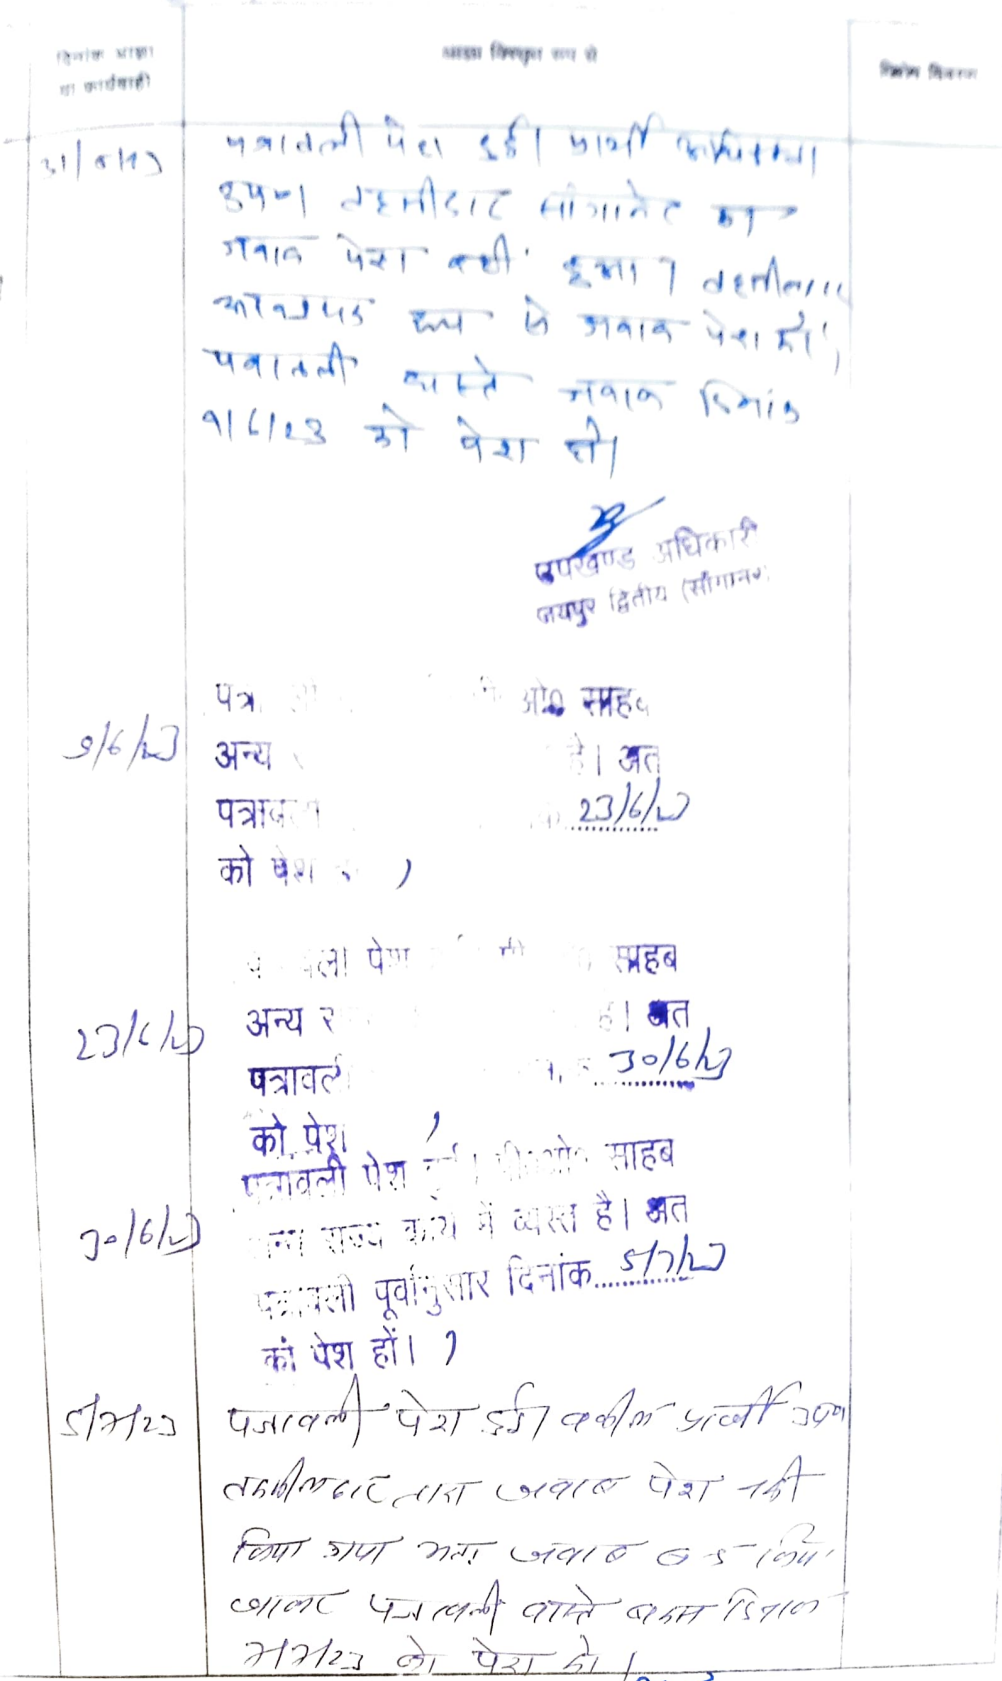 दिनांक आज्ञा
या कार्यवाही
आज्ञा विस्तृत रूप से
विशेष विवरण
पत्रावली पेश हुई। प्रार्थी अधिवक्ता
उप०। तहसीलदार सांगानेर का
जवाब पेश नहीं हुआ। तहसीलदार
से जवाब पेश हो।
पत्रावली वास्ते जवाब दिनांक
9/6/23 को पेश हो।
उपखण्ड अधिकारी
जयपुर द्वितीय (साँगानेर)
9/6/23
पत्रा ओ0 साहब
अन्य है। अत
पत्रावली 23/6/23
को पेश
23/6/23
पेश साहब
अन्य है। अत
पत्रावली 30/6/23
को पेश
पत्रावली पेश हुई। साहब
30/6/23
अन्य राज्य कार्य में व्यस्त है। अत
पत्रावली पूर्वानुसार दिनांक 5/7/23
को पेश हों।
5/7/23
पत्रावली पेश हुई। वकील प्रार्थी उप०
तहसीलदार द्वारा जवाब पेश नहीं
किया गया अतः जवाब बन्द किया
जाकर पत्रावली वास्ते बहस दिनांक
7/7/23 को पेश हो।